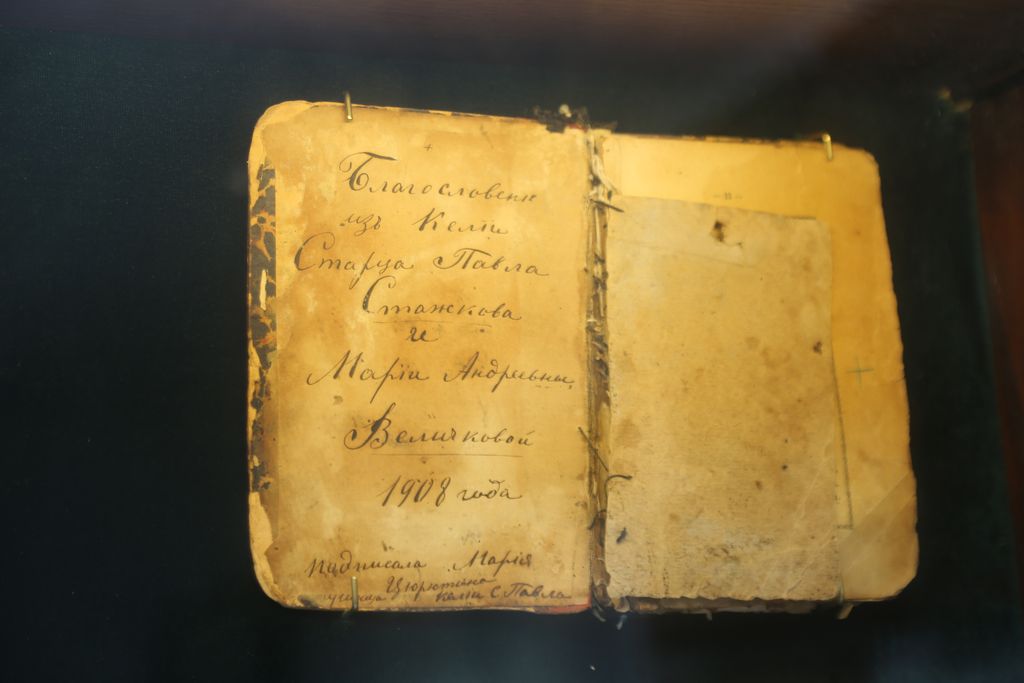 Благословени
изъ Келіи
Старца Павла
Стажкова
и
Маріи Андреевны
Величковой
1908 года
Надписала Марія
Цюрюпина
келіи С Павла